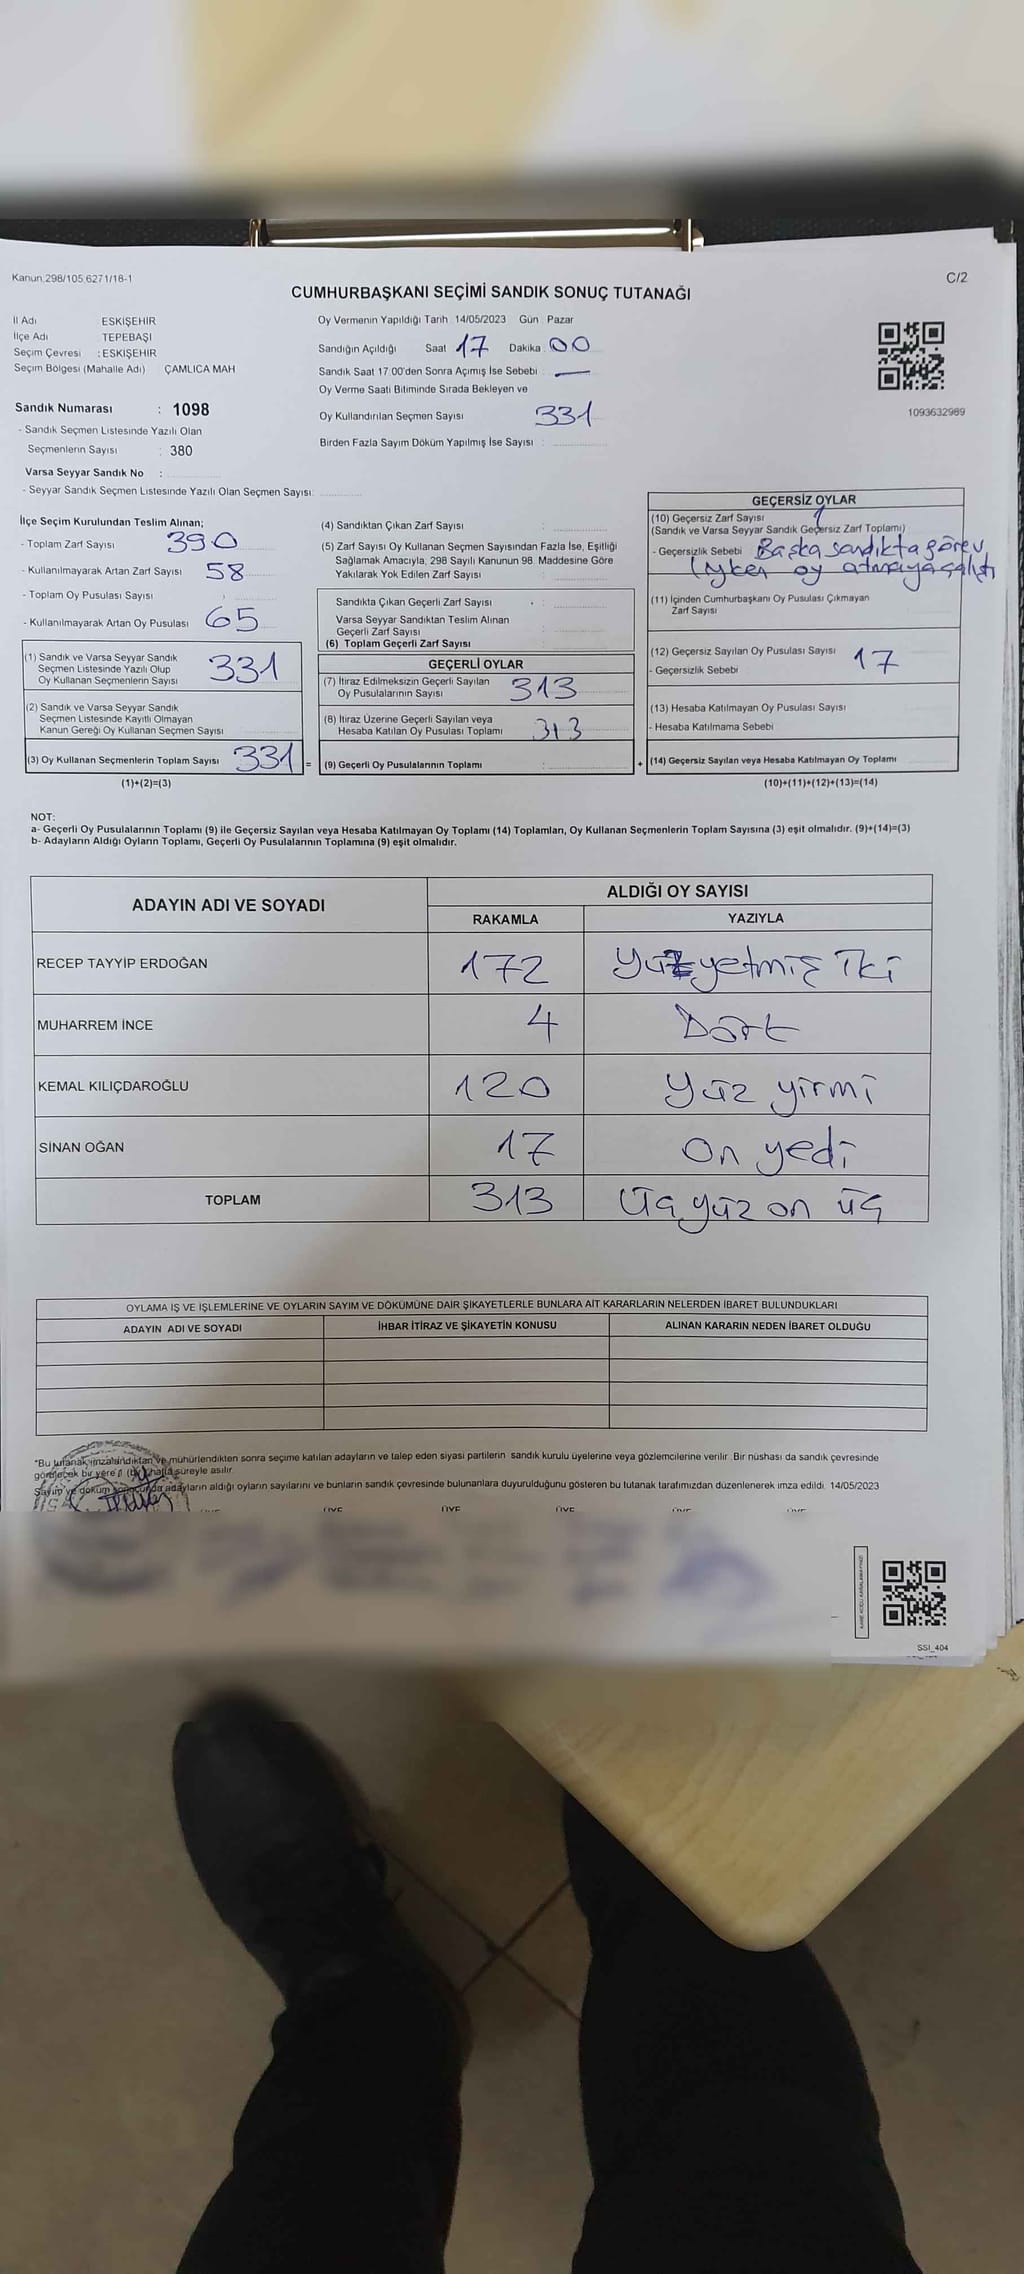 Kanun.298/105.6271/18-1
C/2
CUMHURBAŞKANI SEÇİMİ SANDIK SONUÇ TUTANAĞI
İl Adı ESKİŞEHİR
İlçe Adı TEPEBAŞI
Seçim Çevresi : ESKİŞEHİR
Seçim Bölgesi (Mahalle Adı) ÇAMLICA MAH
Oy Vermenin Yapıldığı Tarih 14/05/2023 Gün Pazar
Sandığın Açıldığı Saat 17 Dakika 00
Sandık Saat 17.00'den Sonra Açımış İse Sebebi : —
Oy Verme Saati Bitiminde Sırada Bekleyen ve
Oy Kullandırılan Seçmen Sayısı 331
Birden Fazla Sayım Döküm Yapılmış İse Sayısı :
1093632989
Sandık Numarası : 1098
- Sandık Seçmen Listesinde Yazılı Olan
Seçmenlerin Sayısı : 380
Varsa Seyyar Sandık No :
- Seyyar Sandık Seçmen Listesinde Yazılı Olan Seçmen Sayısı:
İlçe Seçim Kurulundan Teslim Alınan;
- Toplam Zarf Sayısı 390
- Kullanılmayarak Artan Zarf Sayısı 58
- Toplam Oy Pusulası Sayısı
- Kullanılmayarak Artan Oy Pusulası 65
(1) Sandık ve Varsa Seyyar Sandık
Seçmen Listesinde Yazılı Olup
Oy Kullanan Seçmenlerin Sayısı 331
(2) Sandık ve Varsa Seyyar Sandık
Seçmen Listesinde Kayıtlı Olmayan
Kanun Gereği Oy Kullanan Seçmen Sayısı
(3) Oy Kullanan Seçmenlerin Toplam Sayısı 331 =
(1)+(2)=(3)
(4) Sandıktan Çıkan Zarf Sayısı :
(5) Zarf Sayısı Oy Kullanan Seçmen Sayısından Fazla İse, Eşitliği
Sağlamak Amacıyla, 298 Sayılı Kanunun 98. Maddesine Göre
Yakılarak Yok Edilen Zarf Sayısı :
Sandıkta Çıkan Geçerli Zarf Sayısı :
Varsa Seyyar Sandıktan Teslim Alınan
Geçerli Zarf Sayısı :
(6) Toplam Geçerli Zarf Sayısı :
GEÇERLİ OYLAR
(7) İtiraz Edilmeksizin Geçerli Sayılan
Oy Pusulalarının Sayısı 313
(8) İtiraz Üzerine Geçerli Sayılan veya
Hesaba Katılan Oy Pusulası Toplamı 313
(9) Geçerli Oy Pusulalarının Toplamı : +
GEÇERSİZ OYLAR
(10) Geçersiz Zarf Sayısı 1
(Sandık ve Varsa Seyyar Sandık Geçersiz Zarf Toplamı)
- Geçersizlik Sebebi Başka sandıkta görev
iyken oy atmaya çalıştı
(11) İçinden Cumhurbaşkanı Oy Pusulası Çıkmayan
Zarf Sayısı
(12) Geçersiz Sayılan Oy Pusulası Sayısı 17
- Geçersizlik Sebebi
(13) Hesaba Katılmayan Oy Pusulası Sayısı
- Hesaba Katılmama Sebebi
(14) Geçersiz Sayılan veya Hesaba Katılmayan Oy Toplamı
(10)+(11)+(12)+(13)=(14)
NOT:
a- Geçerli Oy Pusulalarının Toplamı (9) ile Geçersiz Sayılan veya Hesaba Katılmayan Oy Toplamı (14) Toplamları, Oy Kullanan Seçmenlerin Toplam Sayısına (3) eşit olmalıdır. (9)+(14)=(3)
b- Adayların Aldığı Oyların Toplamı, Geçerli Oy Pusulalarının Toplamına (9) eşit olmalıdır.
ADAYIN ADI VE SOYADI ALDIĞI OY SAYISI
RAKAMLA YAZIYLA
RECEP TAYYİP ERDOĞAN 172 Yüzyetmiş iki
MUHARREM İNCE 4 Dört
KEMAL KILIÇDAROĞLU 120 Yüz yirmi
SİNAN OĞAN 17 On yedi
TOPLAM 313 Üç yüz on üç
OYLAMA İŞ VE İŞLEMLERİNE VE OYLARIN SAYIM VE DÖKÜMÜNE DAİR ŞİKAYETLERLE BUNLARA AİT KARARLARIN NELERDEN İBARET BULUNDUKLARI
ADAYIN ADI VE SOYADI İHBAR İTİRAZ VE ŞİKAYETİN KONUSU ALINAN KARARIN NEDEN İBARET OLDUĞU
*Bu tutanak imzalandıktan ve mühürlendikten sonra seçime katılan adayların ve talep eden siyasi partilerin sandık kurulu üyelerine veya gözlemcilerine verilir. Bir nüshası da sandık çevresinde
görülecek bir yere (bir) hafta süreyle asılır.
Sayım ve döküm sonucunda adayların aldığı oyların sayılarını ve bunların sandık çevresinde bulunanlara duyurulduğunu gösteren bu tutanak tarafımızdan düzenlenerek imza edildi. 14/05/2023
ÜYE ÜYE ÜYE ÜYE ÜYE
SSI_404